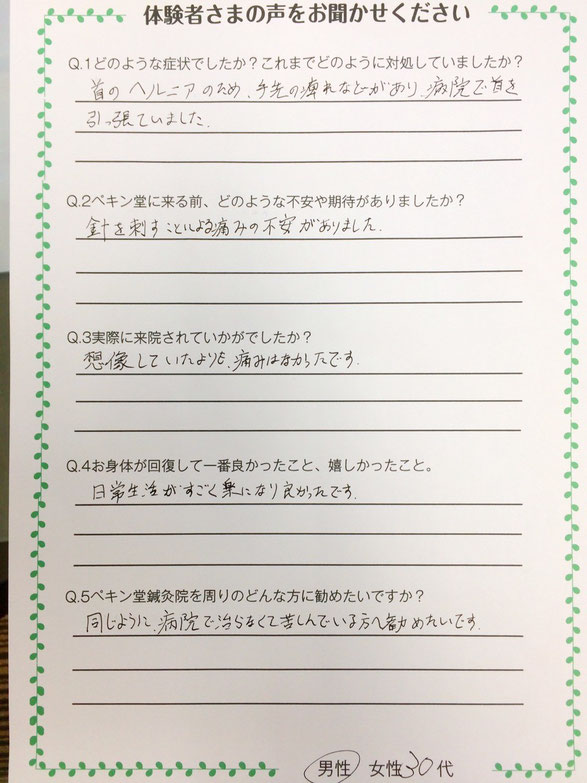 体験者さまの声をお聞かせください
Q.1どのような症状でしたか？これまでどのように対処していましたか？
首のヘルニアのため、手先の痺れなどがあり、病院で首を
引っ張ていました。
Q.2ペキン堂に来る前、どのような不安や期待がありましたか？
針を刺すことによる痛みの不安がありました。
Q.3実際に来院されていかがでしたか？
想像していたよりも、痛みはなかったです。
Q.4お身体が回復して一番良かったこと、嬉しかったこと。
日常生活がすごく楽になり良かったです。
Q.5ペキン堂鍼灸院を周りのどんな方に勧めたいですか？
同じように、病院で治らなくて苦しんでいる方へ勧めたいです。
男性 女性 30代